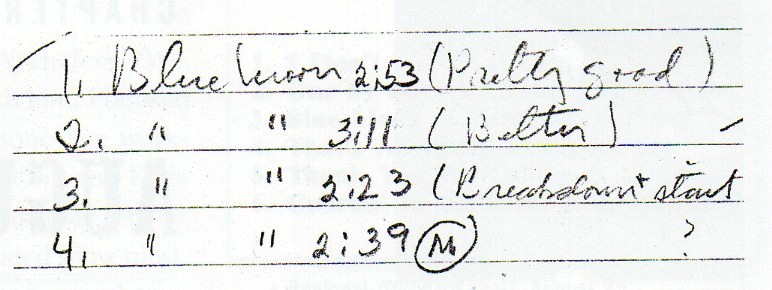 1. Blue Moon 2:53 (Pretty good)
2. " " 3:11 (Better)
3. " " 2:23 (Breakdown + start
4. " " 2:39 (M) ?